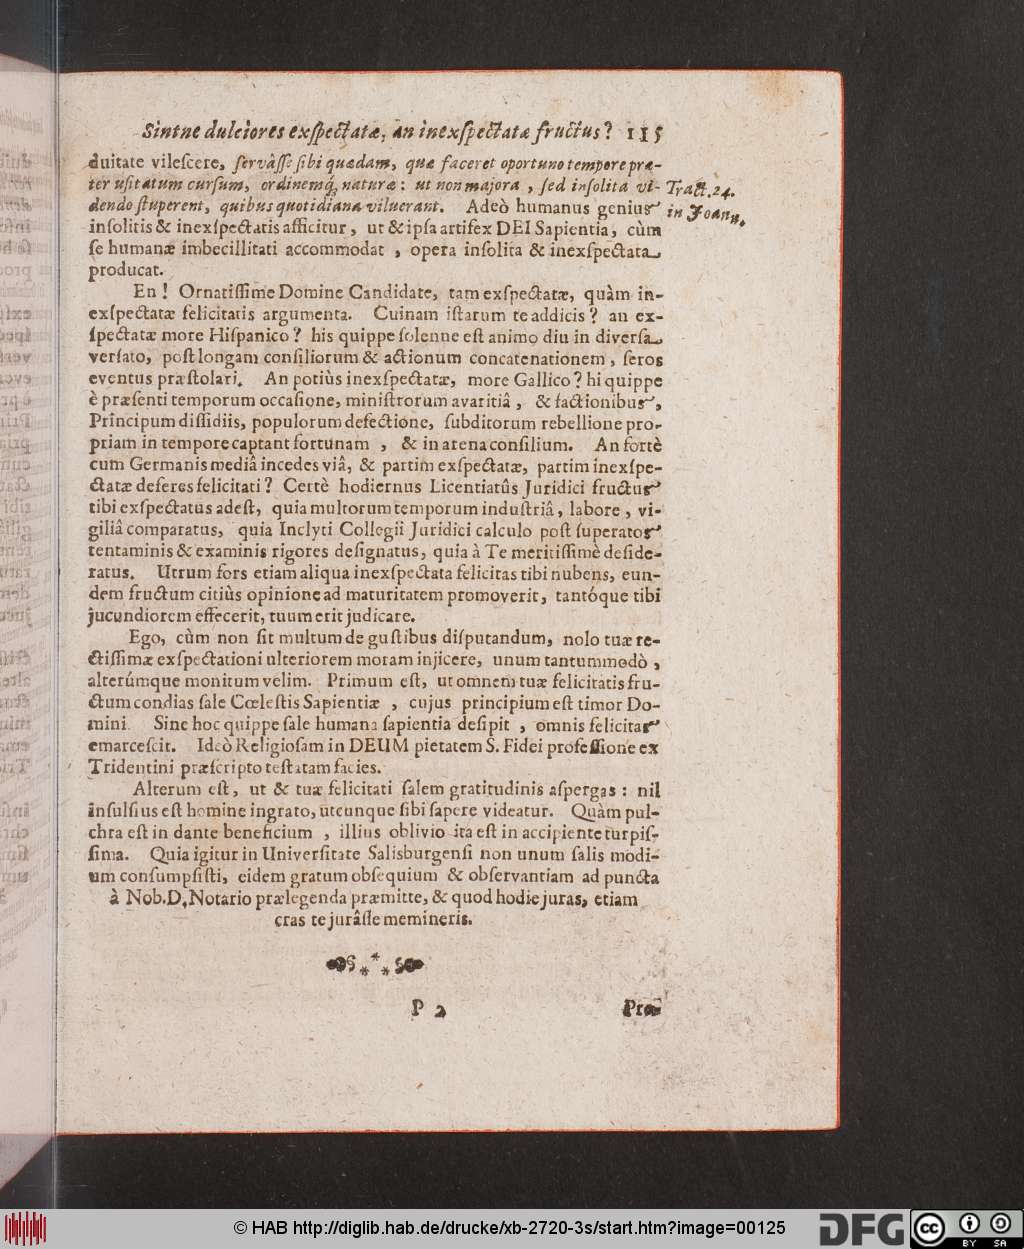 Sintne dulciores exſpectatæ, an inexſpectatæ fructus? 115
duitate vileſcere, ſervâſſe ſibi quædam, quæ faceret oportuno tempore præ-
ter uſitatum curſum, ordinemq́; naturæ: ut non majora, ſed inſolita vi-
dendo ſtuperent, quibus quotidiana viluerant. Adeò humanus genius
Tract. 24.
in Joann.
inſolitis & inexſpectatis afficitur, ut & ipſa artifex DEI Sapientia, cùm
ſe humanæ imbecillitati accommodat, opera inſolita & inexſpectata
producat.
En! Ornatiſſime Domine Candidate, tam exſpectatæ, quàm in-
exſpectatæ felicitatis argumenta. Cuinam iſtarum te addicis? an ex-
ſpectatæ more Hiſpanico? his quippe ſolenne eſt animo diu in diverſa
verſato, poſt longam conſiliorum & actionum concatenationem, ſeros
eventus præſtolari. An potiùs inexſpectatæ, more Gallico? hi quippe
è præſenti temporum occaſione, miniſtrorum avaritiâ, & factionibus,
Principum diſſidiis, populorum defectione, ſubditorum rebellione pro-
priam in tempore captant fortunam, & in arena conſilium. An fortè
cum Germanis mediâ incedes viâ, & partim exſpectatæ, partim inexſpe-
ctatæ deferes felicitati? Certè hodiernus Licentiatûs Juridici fructus
tibi exſpectatus adeſt, quia multorum temporum induſtriâ, labore, vi-
giliâ comparatus, quia Inclyti Collegii Juridici calculo poſt ſuperatos
tentaminis & examinis rigores deſignatus, quia à Te meritiſſimè deſide-
ratus. Utrum fors etiam aliqua inexſpectata felicitas tibi nubens, eun-
dem fructum citiùs opinione ad maturitatem promoverit, tantóque tibi
jucundiorem effecerit, tuum erit judicare.
Ego, cùm non ſit multum de guſtibus diſputandum, nolo tuæ re-
ctiſſimæ exſpectationi ulteriorem moram injicere, unum tantummodò,
alterúmque monitum velim. Primum eſt, ut omnem tuæ felicitatis fru-
ctum condias ſale Cœleſtis Sapientiæ, cujus principium eſt timor Do-
mini. Sine hoc quippe ſale humana ſapientia deſipit, omnis felicitas
emarceſcit. Ideò Religioſam in DEUM pietatem S. Fidei profeſſione ex
Tridentini præſcripto teſtatam facies.
Alterum eſt, ut & tuæ felicitati ſalem gratitudinis aſpergas: nil
inſulſius eſt homine ingrato, utcunque ſibi ſapere videatur. Quàm pul-
chra eſt in dante beneficium, illius oblivio ita eſt in accipiente turpiſ-
ſima. Quia igitur in Univerſitate Salisburgenſi non unum ſalis modi-
um conſumpſiſti, eidem gratum obſequium & obſervantiam ad puncta
à Nob. D. Notario prælegenda præmitte, & quod hodie juras, etiam
cras te jurâſſe memineris.
P 2 Præ-
© HAB http://diglib.hab.de/drucke/xb-2720-3s/start.htm?image=00125
DFG cc BY SA